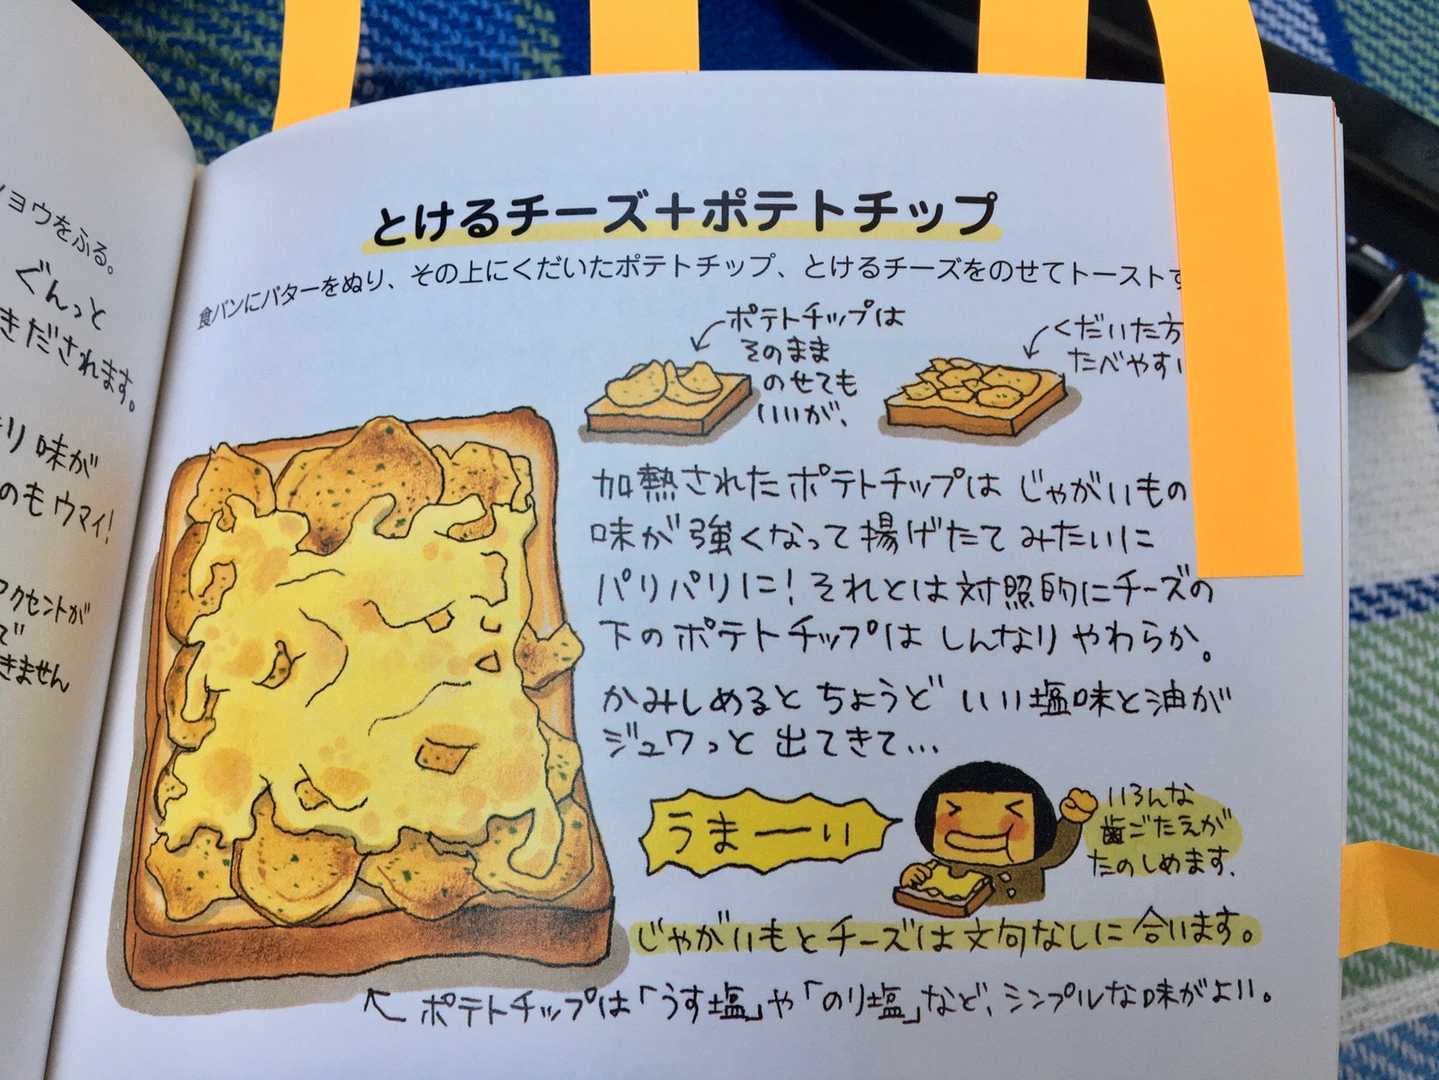 ョウをふる。
ぐんっと
きだされます。
り味が
のもウマイ!
アクセントが
で
きません
とけるチーズ+ポテトチップ
食パンにバターをぬり、その上にくだいたポテトチップ、とけるチーズをのせてトースト
ポテトチップは
そのまま
のせても
いいが、
くだいた方
たべやすい
加熱されたポテトチップは じゃがいもの
味が強くなって揚げたてみたいに
パリパリに!それとは対照的にチーズの
下のポテトチップは しんなりやわらか。
かみしめるとちょうど いい塩味と油が
ジュワっと出てきて…
うまーーい
いろんな
歯ごたえが
たのしめます。
じゃがいもとチーズは文句なしに合います。
ポテトチップは「うす塩」や「のり塩」など、シンプルな味がよい。